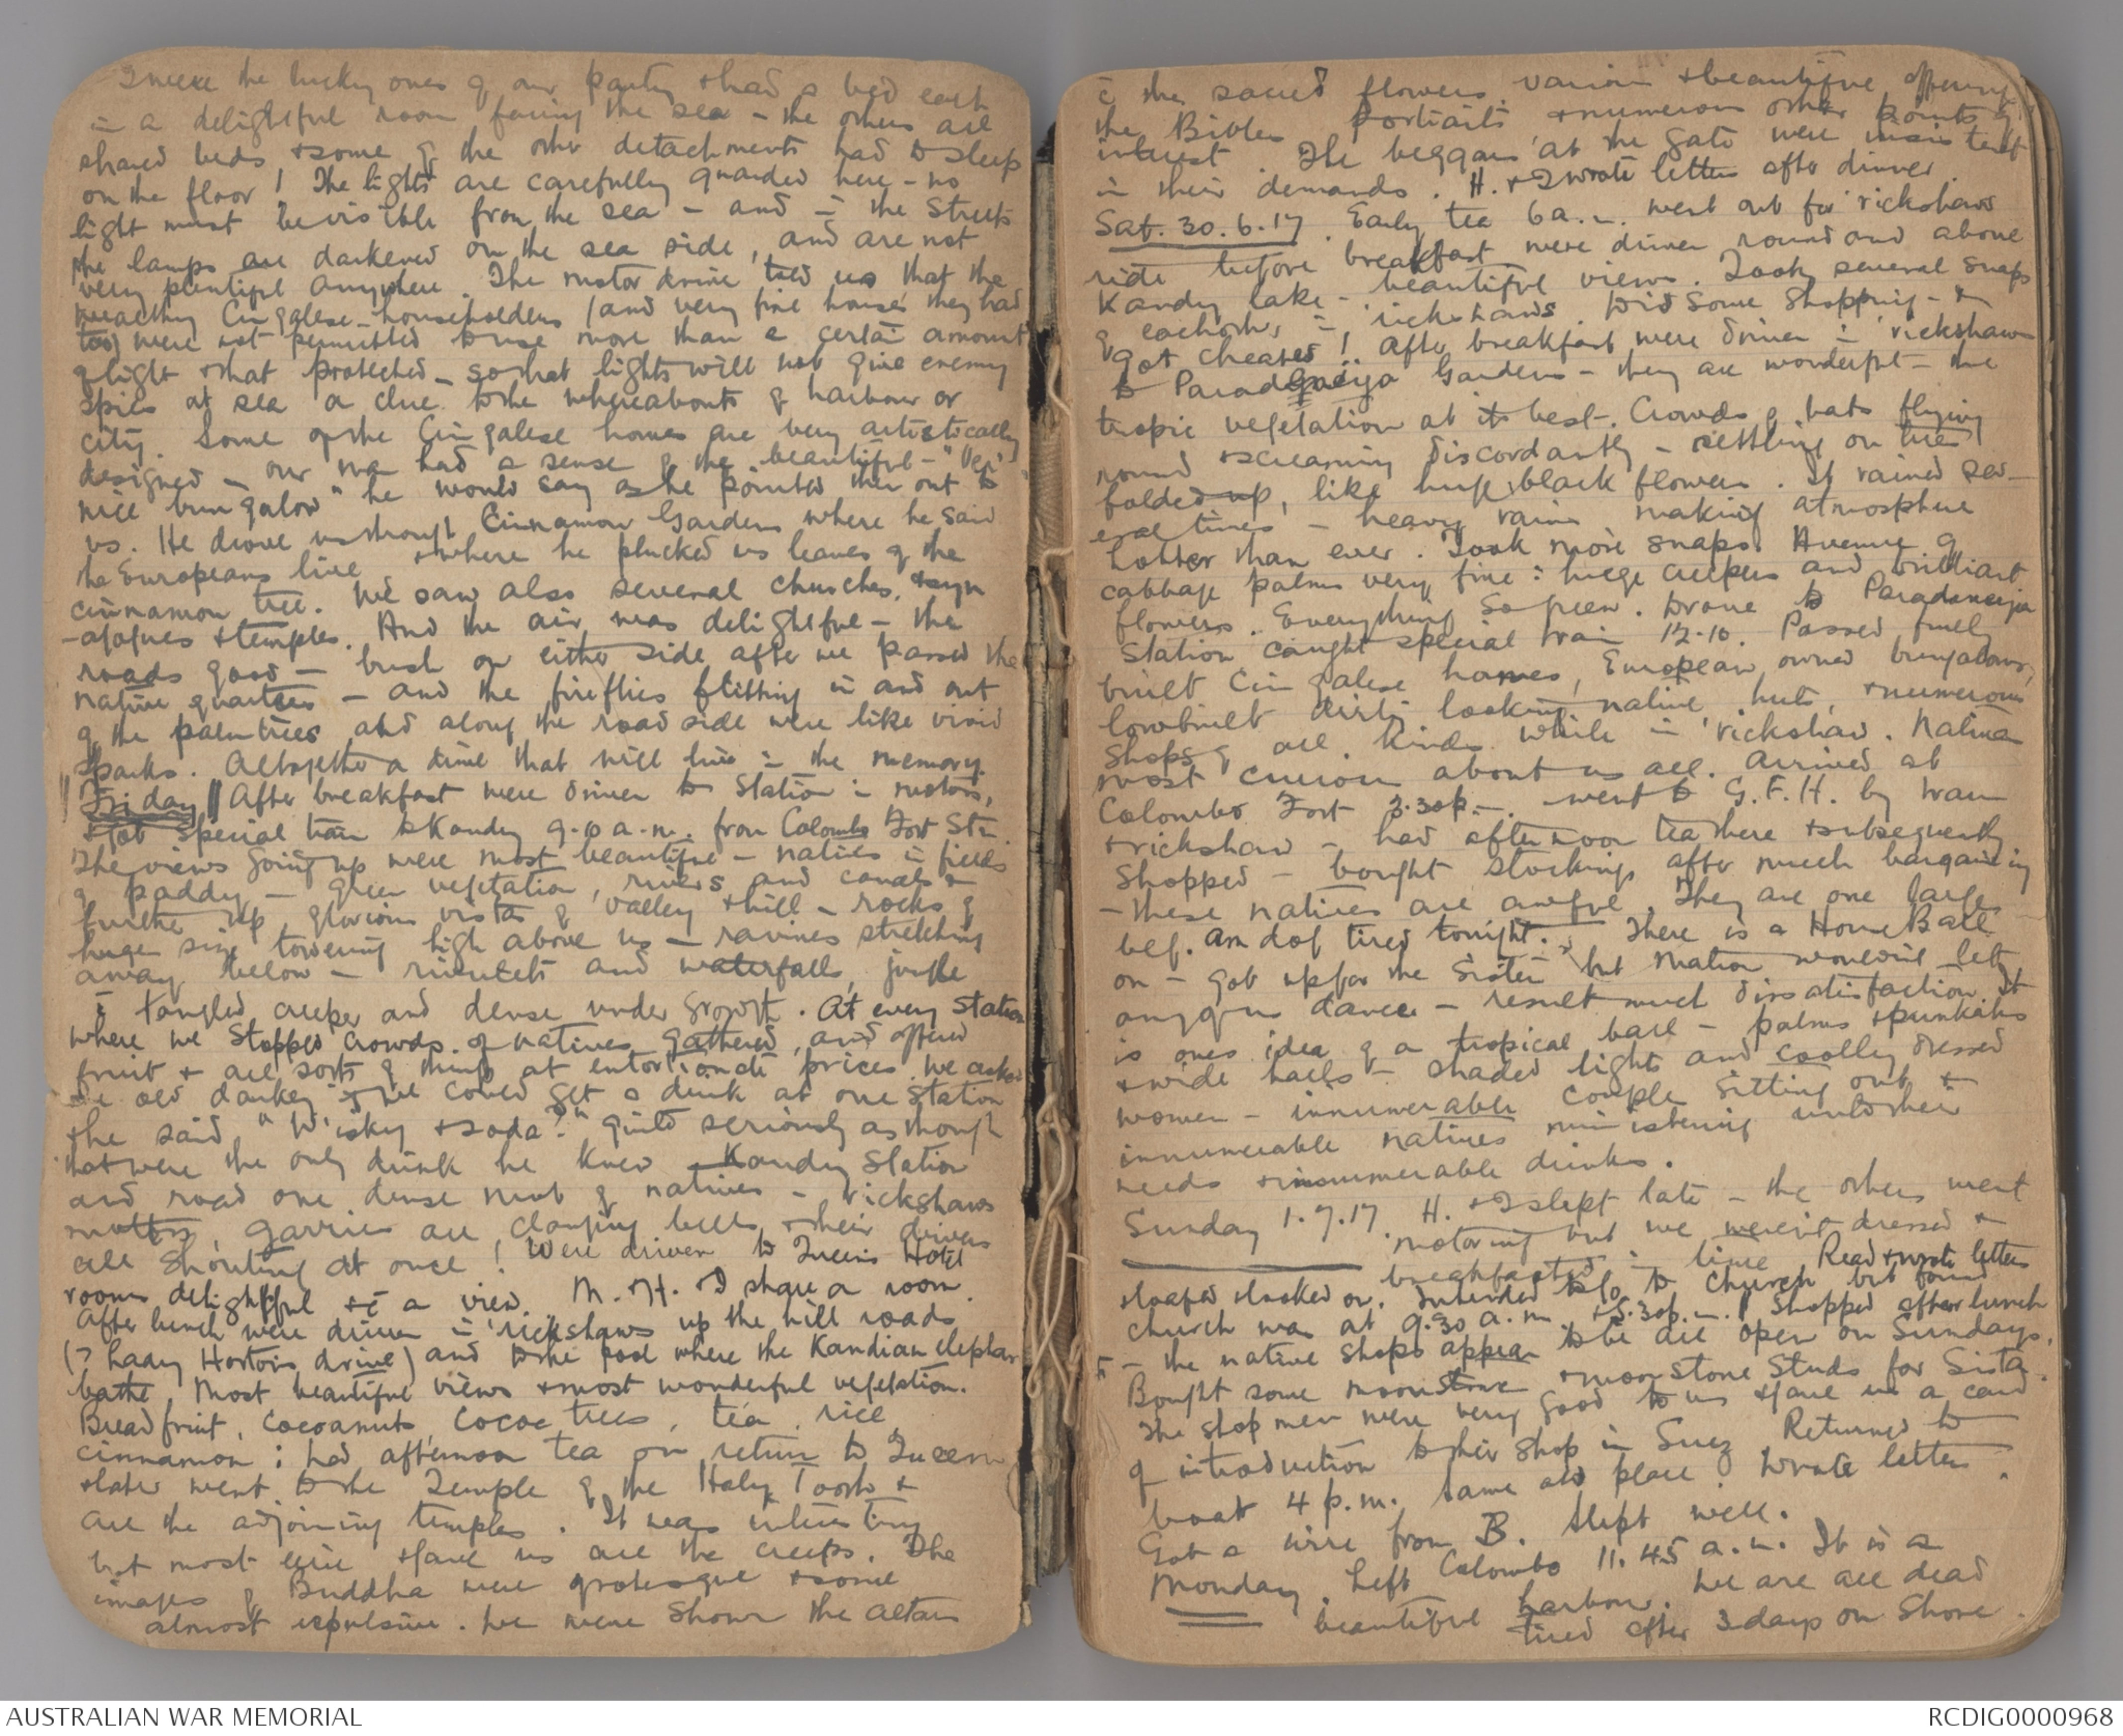 I were the lucky ones of our party & had a bed each
in a delightful room facing the sea – the others all
shared beds & some of the other detachments had to sleep
on the floor! The lights are carefully guarded here – no
light must be visible from the sea – and in the streets
the lamps are darkened on the sea side, and are not
very plentiful anywhere. The motor driver told us that the
wealthy Cingalese householders (and very fine houses they had
too) were not permitted to use more than a certain amount
of light & that protected – so that lights will not give enemy
spies at sea a clue to the whereabouts of harbour or
city. Some of the Cingalese homes are very artistically
designed – our man had a sense of the beautiful – "Veri
nice bungalow" he would say as he pointed them out to
us. He drove us through Cinnamon Gardens where he said
the Europeans live & where he plucked us leaves of the
cinnamon tree. We saw also several churches, syn
-agogues & temples. And the air was delightful – the
roads good – bush on either side after we passed the
native quarters – and the fireflies flitting in and out
of the palm trees and along the road side were like vivid
sparks. Altogether a time that will live in the memory.
Friday || After breakfast were driven to Station in motors,
& got special train to Kandy 9.10 a.m. from Colombo Fort Stn.
The views going up were most beautiful – natives in fields
of paddy – green vegetation, rivers and canals &
further up glorious vistas of valley & hill – rocks of
huge size towering high above us – ravines stretching
away below – rivulets and waterfalls, jungle
c̄ tangled creeper and dense under growth. At every station
where we stopped crowds of natives gathered, and offered
fruit & all sorts of things at extortionate prices. We asked
one old darkey if we could get a drink at one station
& he said "W'isky & soda?" quite seriously as though
that were the only drink he knew – Kandy Station
and road one dense mob of natives – rickshaws
motors, garries all clanging bells & their drivers
all shouting at once! Were driven to Queens Hotel
rooms delightful & c̄ a view. M. H. & I share a room.
After lunch were driven in 'rickshaws up the hill roads
(? Lady Horton's drive) and to the pool where the Kandian elephants
bathe. Most beautiful views & most wonderful vegetation.
Bread fruit, cocoanuts, cocoa trees, tea, rice
cinnamon: had afternoon tea on return to Queens
& later went to the Temple of the Holy Tooth &
all the adjoining temples. It was interesting
but most eerie & gave us all the creeps. The
images of Buddha were grotesque & some
almost repulsive. We were shown the altars
c̄ the sacred flowers various & beautiful offerings
the Bibles portraits & numerous other points of
interest. The beggars at the gate were insistent
in their demands. H. & I wrote letters after dinner.
Sat. 30.6.17. Early tea 6 a.m. went out for 'rickshaw
ride before breakfast were driven round and above
Kandy lake – beautiful views. Took several snaps
of each other in rickshaws. Did some shopping – &
got cheated! After breakfast were driven in 'rickshaws
to Paradeneiya Gardens – they are wonderful – the
tropic vegetation at its best. Crowds of bats flying
round & screaming discordantly – settling on trees
folded up, like huge black flowers. It rained sev-
eral times – heavy rain making atmosphere
hotter than ever. Took more snaps. Avenue of
cabbage palms very fine: huge creepers and brilliant
flowers. Everything so green. Drove to Paradeneeja
Station caught special train 12.10. Passed finely
built Cingalese homes, European owned bungalows,
lowbuilt dirty looking native huts, & numerous
shops of all kinds while in 'rickshaw. Natives
most curious about us all. Arrived at
Colombo Fort 3.30 p.m. went to G.F.H. by tram
& rickshaw – had afternoon tea there & subsequently
shopped – bought stockings after much bargaining
– these natives are awful. They are one large
beg. Am dog tired tonight. There is a Home Ball
on – got up for the Sisters but Matron wouldn't let
any of us dance – result much dissatisfaction. It
is ones idea of a tropical ball – palms & punkahs
& wide halls – shaded lights and coolly dressed
women – innumerable couples sitting out &
innumerable natives ministering unto their
needs & innumerable drinks.
Sunday 1.7.17. H. & I slept late – the others went
motoring but we weren't dressed &
breakfasted in time. Read & wrote letters
& loafed & looked on. Intended to go to church but found
church was at 9.30 a.m. & 5.30 p.m. Shopped after lunch
– the native shops appear to be all open on Sundays.
Bought some moonstone & moonstone studs for Sista.
The shop men were very good to us & gave us a card
of introduction to their shop in Suez. Returned to
boat 4 p.m. Same old place. Wrote letters.
Got a wire from B. Slept well.
Monday Left Colombo 11.45 a.m. It is a
beautiful harbour. We are all dead
tired after 3 days on shore.
AUSTRALIAN WAR MEMORIAL
RCDIG0000968